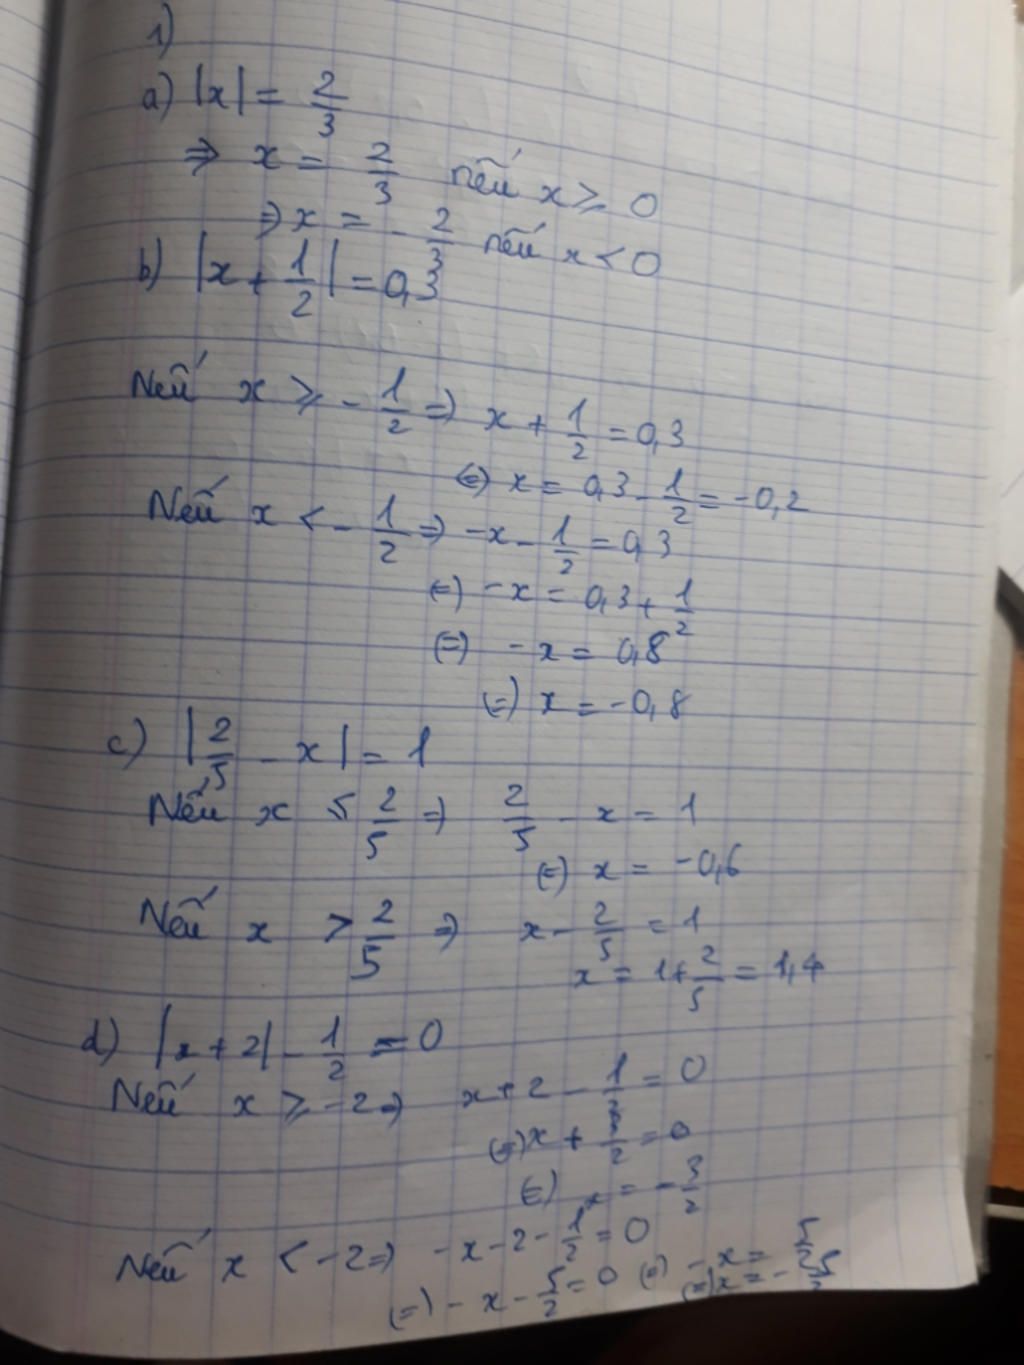 1)
a) |x| = 2/3
⇒ x = 2/3 nếu x ≥ 0
⇒ x = - 2/3 nếu x < 0
b) |x + 1/2| = 0,3
Nếu x ≥ - 1/2 ⇒ x + 1/2 = 0,3
(=) x = 0,3 - 1/2 = -0,2
Nếu x < - 1/2 ⇒ -x - 1/2 = 0,3
(=) -x = 0,3 + 1/2
(=) -x = 0,8
(=) x = -0,8
c) |2/5 - x| = 1
Nếu x ≤ 2/5 ⇒ 2/5 - x = 1
(=) x = -0,6
Nếu x > 2/5 ⇒ x - 2/5 = 1
x = 1 + 2/5 = 1,4
d) |x + 2| - 1/2 = 0
Nếu x ≥ -2 ⇒ x + 2 - 1/2 = 0
(=) x + 3/2 = 0
(=) x = - 3/2
Nếu x < -2 ⇒ -x - 2 - 1/2 = 0
(=) -x - 5/2 = 0 (=) -x = 5/2
(=) x = - 5/2